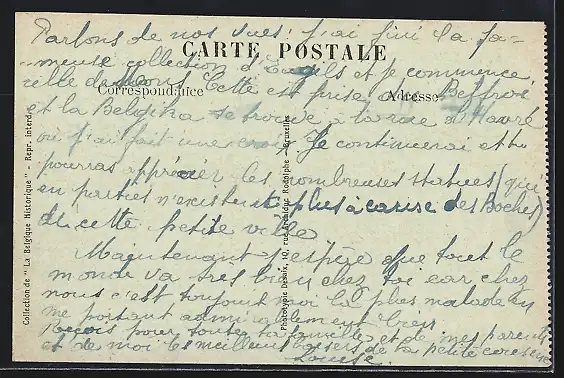 Parlons de nos vues! j'ai fini la fa-
CARTE POSTALE
meuse collection d' et je commence
celle de Mons. Cette est prise du Beffroi
Correspondance
Adresse
et la Belgika se trouve à la rue d'Havré
où j'ai fait une croix. Je continuerai et tu
pourras apprécier les nombreuses statues (qui
en parties n'existent plus à cause des Boches)
de cette petite ville
Maintenant j'espère que tout le
monde va très bien chez toi car chez
nous c'est toujours moi la plus malade en
me portant admirablement bien
Reçois pour toute ta famille et de mes parents
et de moi les meilleurs baisers de ta petite
Louise.
Collection de "La Belgique Historique" - Repr. interd.
Phototypie Desaix, 10, rue Archiduc Rodolphe - Bruxelles